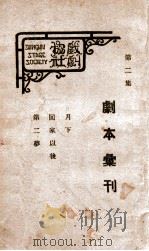 第二集
劇本彙刊
月下
回家以後
第二夢
戲劇協社
SHANGHAI
STAGE
SOCIETY